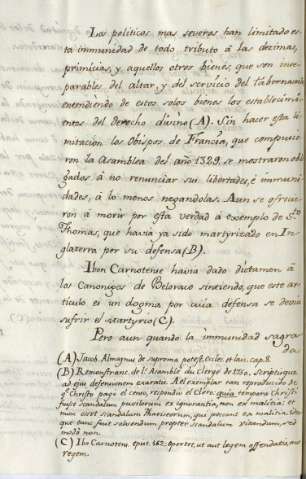 Los politicos mas severos han limitado es-
ta immunidad de todo tributo á las decimas,
primicias, y aquellos otros bienes, que son inse-
parables del altar, y del servicio del tabernaculo
entendiendo de estos solos bienes los establecimi-
entos del derecho divino (A). Sin hacer esta li-
mitacion los Obispos de Francia, que compusie-
ron la Asamblea del año 1329. se mostraron obli-
gados á no renunciar sus libertades, é immuni-
dades, á lo menos negandolas. Aun se ofrecie-
ron á morir por esta verdad á exemplo de Sto
Thomas, que havia ya sido martyrizado en In-
glaterra por su defensa (B).
Iben Carnotense havia dado dictamen á
los Canoniges de Belovaco diciendo, que este ar-
ticulo es un dogma por cuia defensa se devia
sufrir el martyrio (C).
Pero aun quando la immunidad sagra-
da
(A) Jacob. Almaynus de suprema potest. eccles. et laic. cap. 8.
(B) Remonstranc. de l'Asamblé du Clergé de 1750. Scriptique
ad ejus defensionem exaratu. Ad exemplar nam reproducido de
q.e Christo pago el censo, respondio el Clero: quia tempore Christi
fuisse scandalum pusillorum ex ignorantia, non ex malitia; et
nunc esset scandalum Phariseorum, qui peccant ex malitia. Un-
que tunc fuit subvendum propter scandalum vitandum, sed
modo non.
(C) Ibo Carnotens. epist. 182. oportet, ut aut legem offendatis, aut
regem.